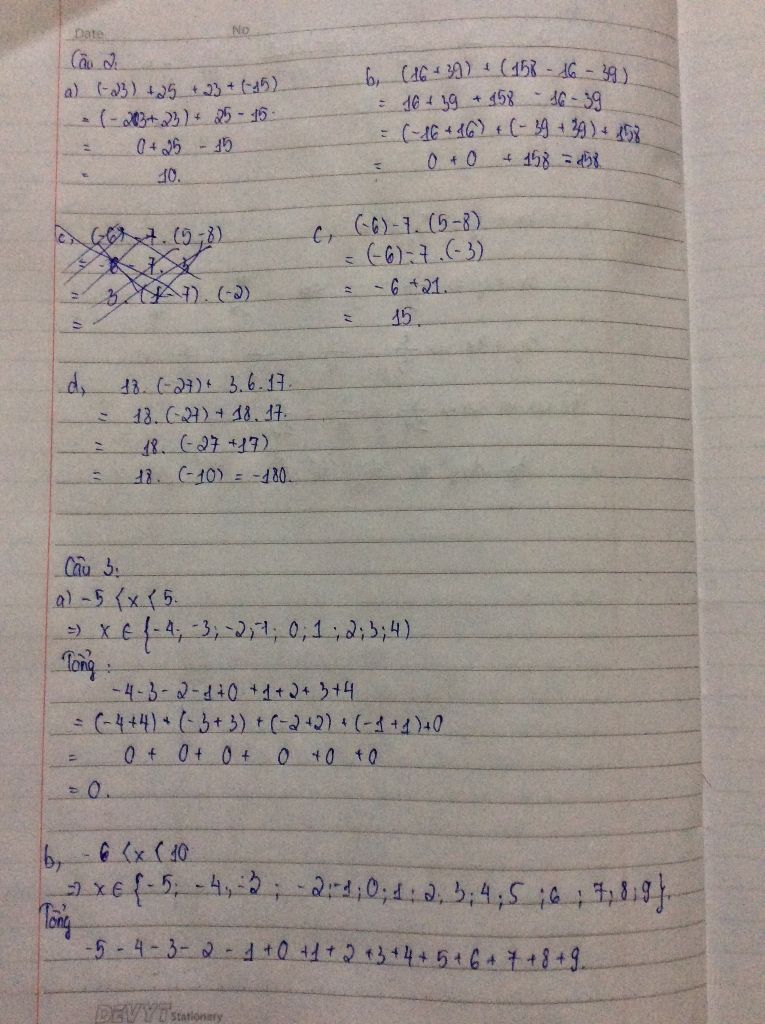 Date No
Câu 2:
a) (-23) + 25 + 23 + (-15)
= (-23 + 23) + 25 - 15.
= 0 + 25 - 15
= 10.
b, (16 + 39) + (158 - 16 - 39)
= 16 + 39 + 158 - 16 - 39
= (-16 + 16) + (-39 + 39) + 158
= 0 + 0 + 158 = 158
c, (-6) - 7 . (5 - 8)
= 3 . (1 - 7) . (-2)
=
c, (-6) - 7 . (5 - 8)
= (-6) - 7 . (-3)
= -6 + 21.
= 15.
d, 18. (-27) + 3.6.17.
= 18. (-27) + 18.17.
= 18. (-27 + 17)
= 18. (-10) = -180.
Câu 3:
a) -5 < x < 5.
=> x ∈ {-4; -3; -2; -1; 0; 1; 2; 3; 4)
Tổng:
-4 - 3 - 2 - 1 + 0 + 1 + 2 + 3 + 4
= (-4 + 4) + (-3 + 3) + (-2 + 2) + (-1 + 1) + 0
= 0 + 0 + 0 + 0 + 0 + 0
= 0.
b, -6 < x < 10
=> x ∈ {-5; -4; -3; -2; -1; 0; 1; 2, 3; 4; 5; 6; 7; 8; 9}.
Tổng
-5 - 4 - 3 - 2 - 1 + 0 + 1 + 2 + 3 + 4 + 5 + 6 + 7 + 8 + 9.
DEVYT Stationery